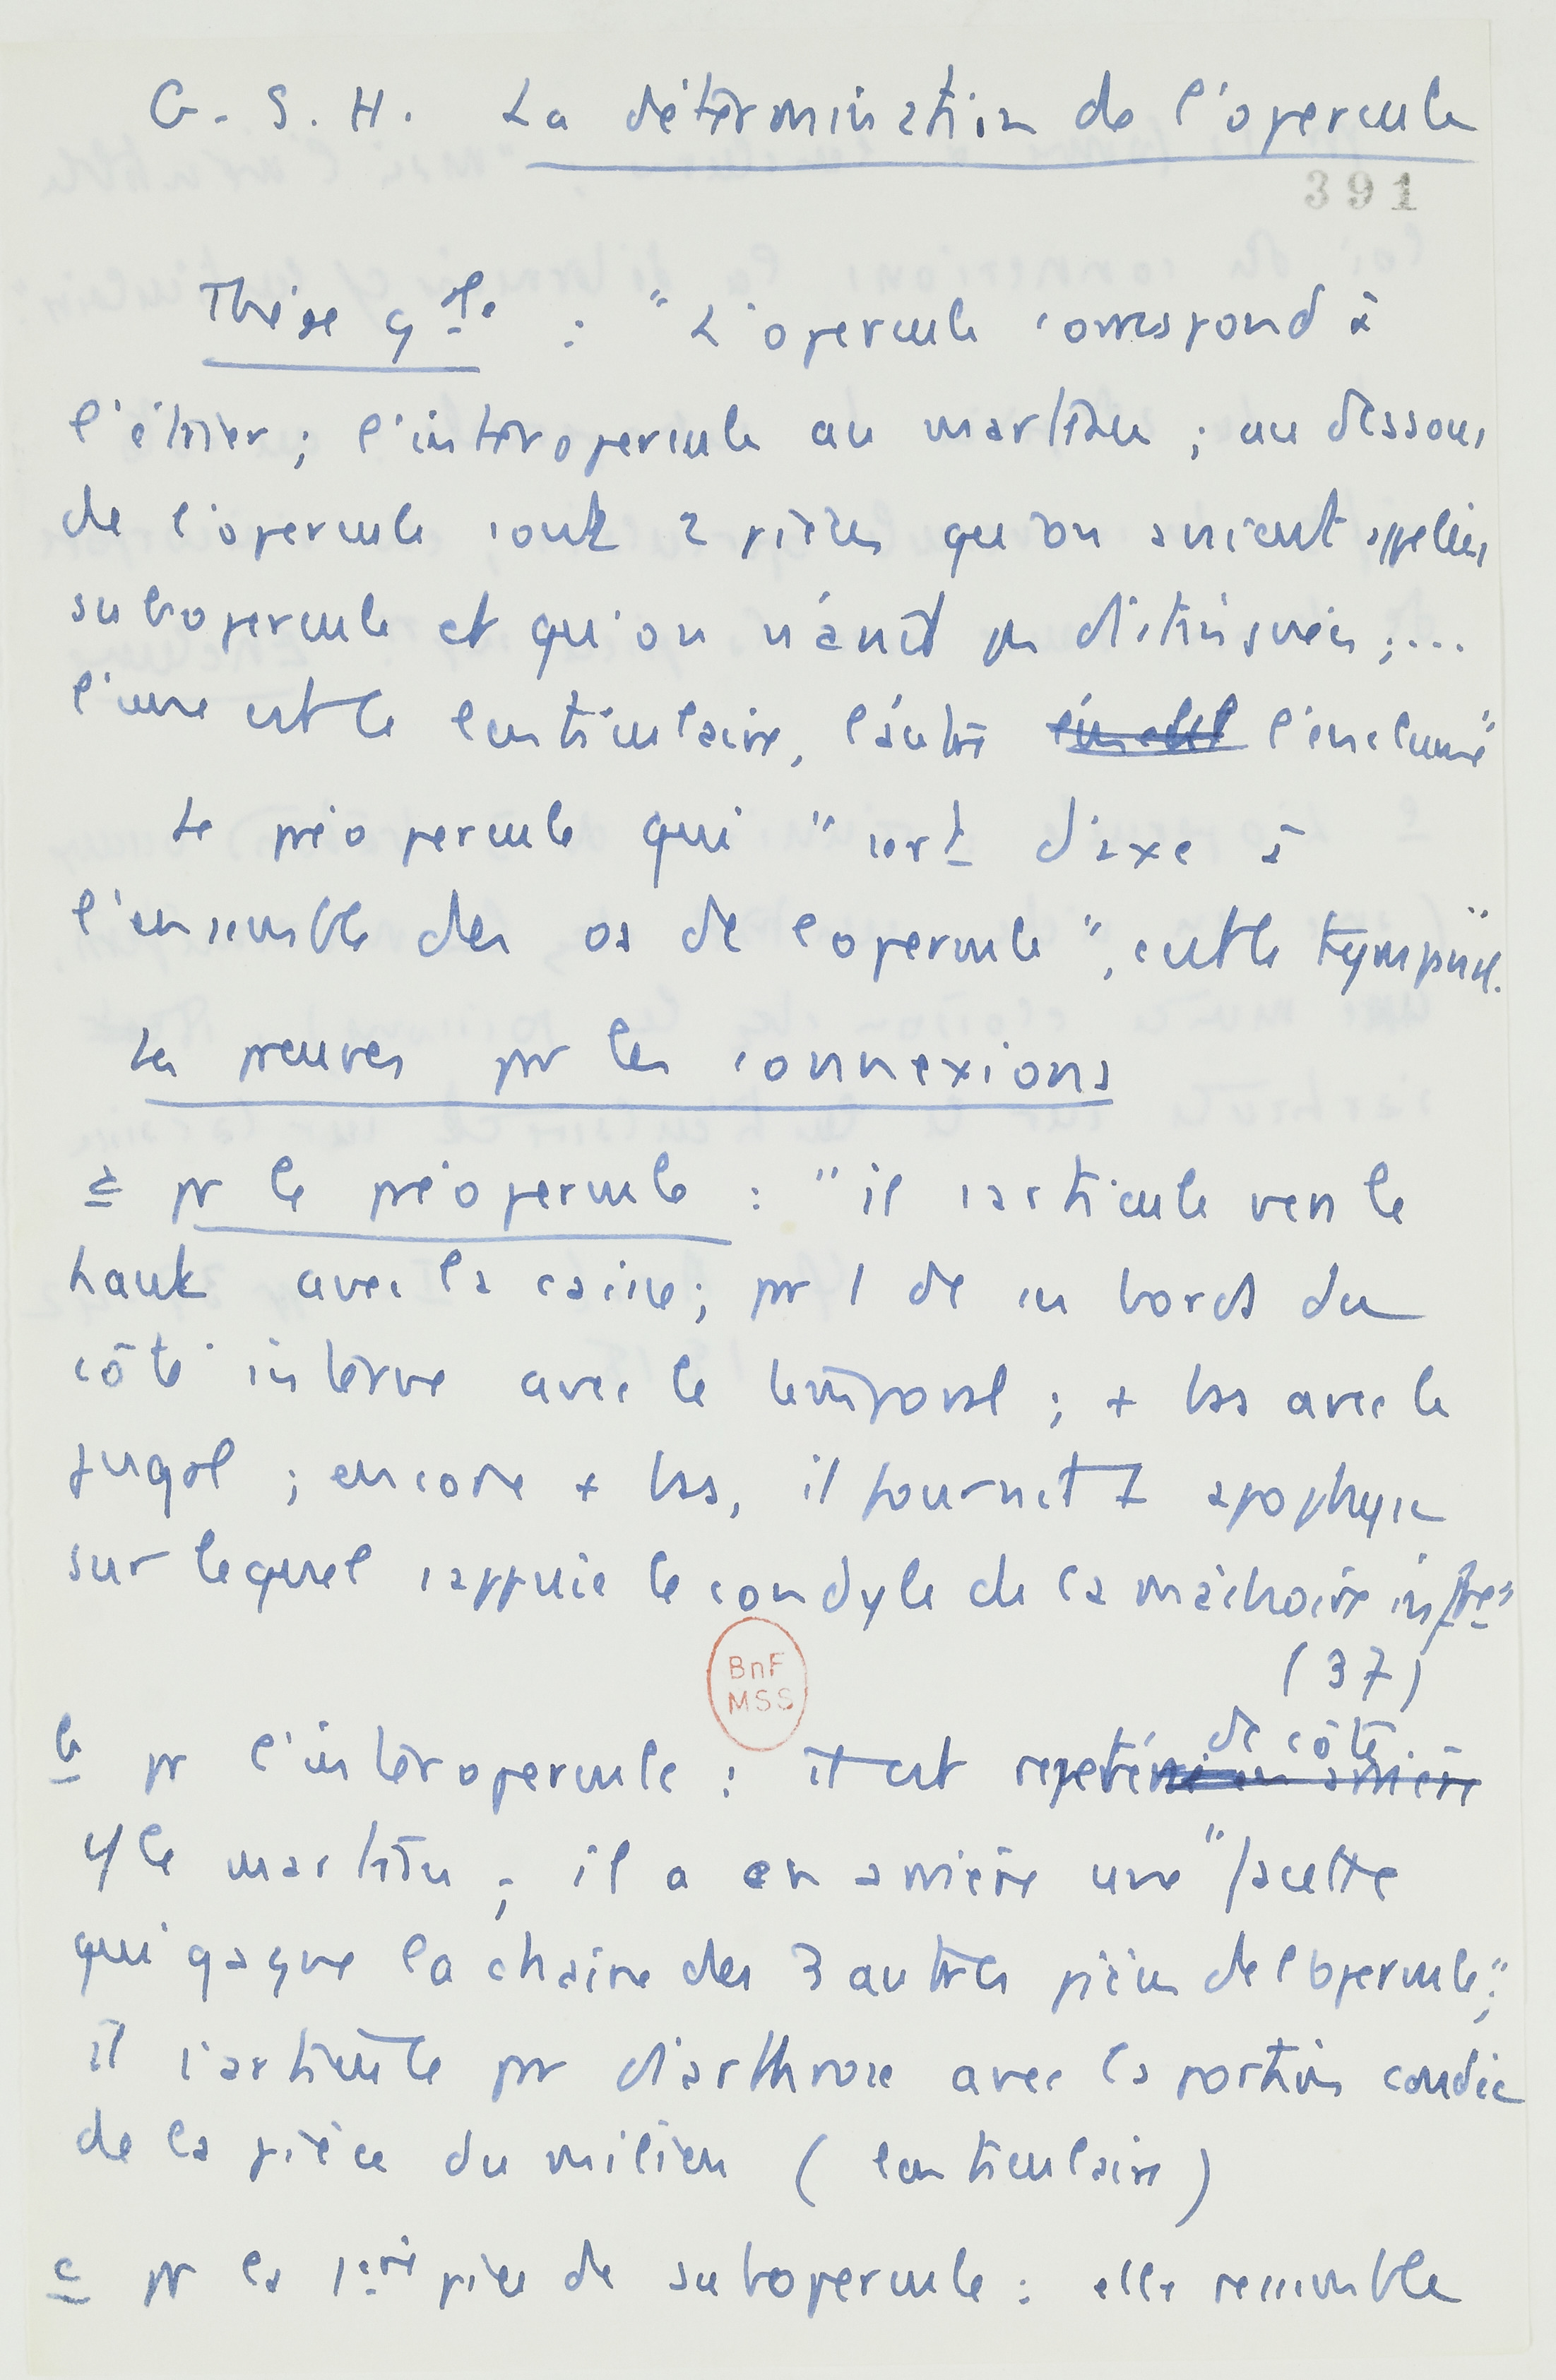 G. S. H. La détermination de l'opercule
391
Thèse gale : "L'opercule correspond à
l'étrier ; l'interopercule au marteau ; au dessous
de l'opercule sont 2 pièces qu'on avaient appelées
subopercule et qu'on n'avait pas distinguées ;...
l'une est le lenticulaire, l'autre l'enclume"
Le préopercule qui "sert d'axe à
l'ensemble des os de l'opercule", c'est le tympanal.
Les preuves par les connexions
a pr le préopercule : "il s'articule vers le
haut avec la caisse ; par 1 de ses bords du
côté interne avec le temporal ; + bas avec le
jugal ; encore + bas, il fournit 1 apophyse
sur lequel s'appuie le condyle de la mâchoire infre"
(37)
de côté
b pr l'interopercule : il est rejeté en arrière
c/ le marteau ; il a en arrière une "facette
qui gagne la chaine des 3 autres pièces de l'opercule";
il s'articule par diarthrose avec la portion coudée
de la pièce du milieu (lenticulaire)
c pr la 1ère pièce de subopercule : elle ressemble
BnF
MSS